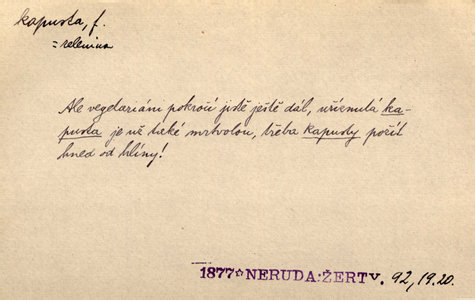 kapusta, f.
= zelenina
Ale vegetariáni pokročí jistě ještě dál, uříznutá ka-
pusta je už také mrtvolou, třeba kapusty požít
hned od hlíny!
1877☆NERUDA:ŽERTV. 92, 19.20.